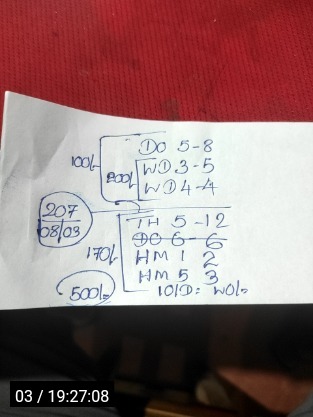 DO 5-8
100/-
200/- WD 3-5
WD 4-4
207
08/03
TH 5-12
DO 6-6
170/-
HM 1 2
HM 5 3
500/-
03 / 19:27:08